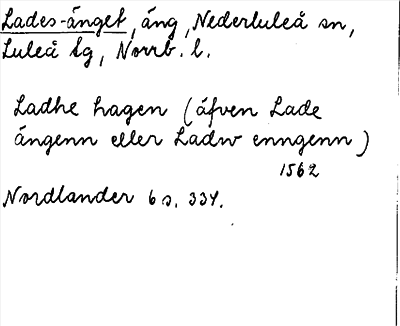 Lades-änget, äng, Nederluleå sn,
Luleå tg, Norrb. l.
Ladhe hagen (äfven Lade
ängenn eller Ladw enngenn)
1562
Nordlander 6 s. 334.